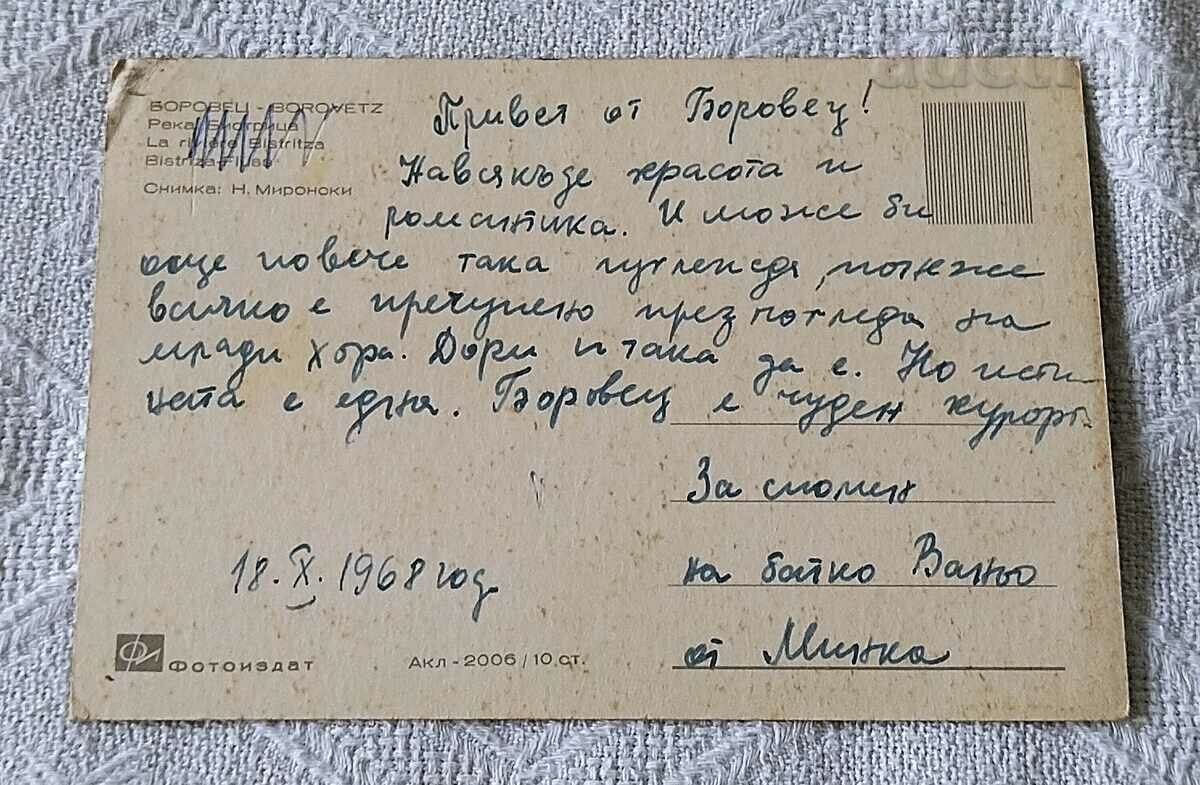 БОРОВЕЦ - BOROVETZ
Река Бистрица
La rivière Bistritza
Bistriza-Fluss
Снимка: Н. Миронски
Привет от Боровец!
Навсякъде красота и
романтика. И може би
още повече така изглежда, понеже
всичко е пречупено през погледа на
млади хора. Дори и така да е. Но исти-
ната е една. Боровец е чуден курорт.
За спомен
на батко Ваньо
от Минка
18. X. 1968 год.
Фотоиздат
Акл - 2006 / 10 ст.